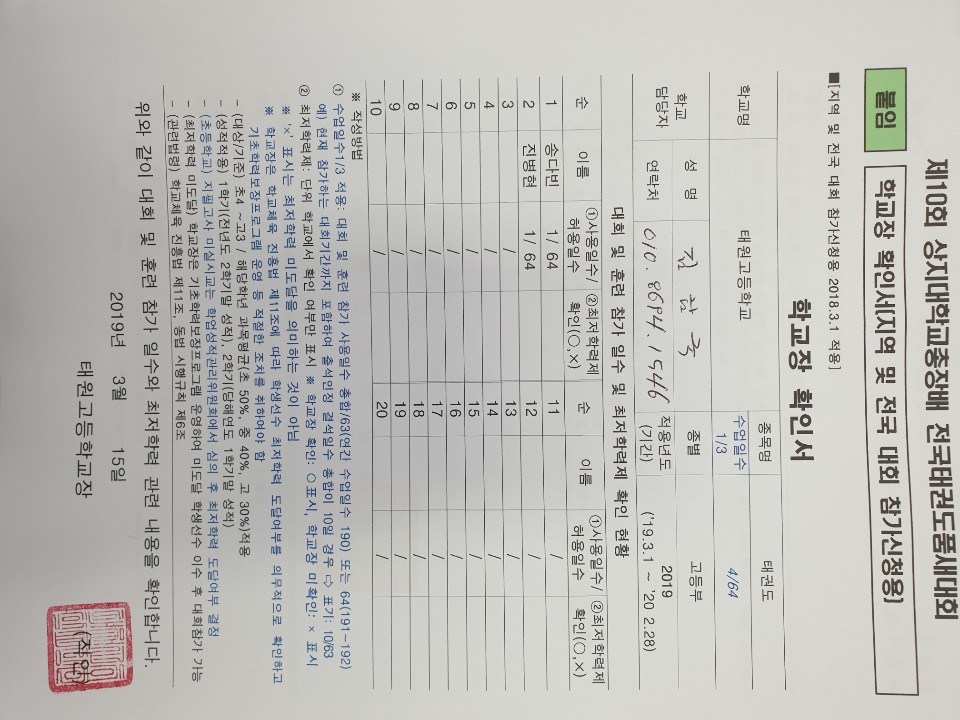 제10회 상지대학교총장배 전국태권도품새대회
붙임 학교장 확인서[지역 및 전국 대회 참가신청용]
■[지역 및 전국 대회 참가신청용 2018.3.1 적용]
학교장 확인서
학교명 태원고등학교 종목명 태권도
수업일수 1/3 4/64
학교 담당자 성 명 종별 고등부
연락처 010.8694.1546 적용년도 (기간) 2019 ('19.3.1 ~ '20 2.28)
대회 및 훈련 참가 일수 및 최저학력제 확인 현황
순 이름 ①사용일수/허용일수 ②최저학력제 확인(○,×) 순 이름 ①사용일수/허용일수 ②최저학력제 확인(○,×)
1 송다빈 1/ 64 11 /
2 진병현 1/ 64 12 /
3 / 13 /
4 / 14 /
5 / 15 /
6 / 16 /
7 / 17 /
8 / 18 /
9 / 19 /
10 / 20 /
※ 작성방법
① 수업일수1/3 적용: 대회 및 훈련 참가 사용일수 총합/63(연간 수업일수 190) 또는 64(191~192)
예) 현재 참가하는 대회기간까지 포함하여 출석인정 결석일수 총합이 10일 경우 ⇨ 표기: 10/63
② 최저학력제: 단위 학교에서 확인 여부만 표시 ※ 학교장 확인: ○표시, 학교장 미확인: × 표시
※ '×' 표시는 최저학력 미도달을 의미하는 것이 아님
※ 학교장은 학교체육 진흥법 제11조에 따라 학생선수 최저학력 도달여부를 의무적으로 확인하고
기초학력보장프로그램 운영 등 적절한 조치를 취하여야 함
- (대상/기준) 초4 ~고3 / 해당학년 과목평균(초 50%, 중 40%, 고 30%)적용
- (성적적용) 1학기(전년도 2학기말 성적), 2학기(당해연도 1학기말 성적)
- (초등학교) 지필고사 미실시교는 학업성적관리위원회에서 심의 후 최저학력 도달여부 결정
- (최저학력 미도달) 학교장은 기초학력보장프로그램 운영하여 미도달 학생선수 이수 후 대회참가 가능
- (관련법령) 학교체육 진흥법 제11조, 동법 시행규칙 제6조
위와 같이 대회 및 훈련 참가 일수와 최저학력 관련 내용을 확인합니다.
2019년 3월 15일
태원고등학교장 (직인)